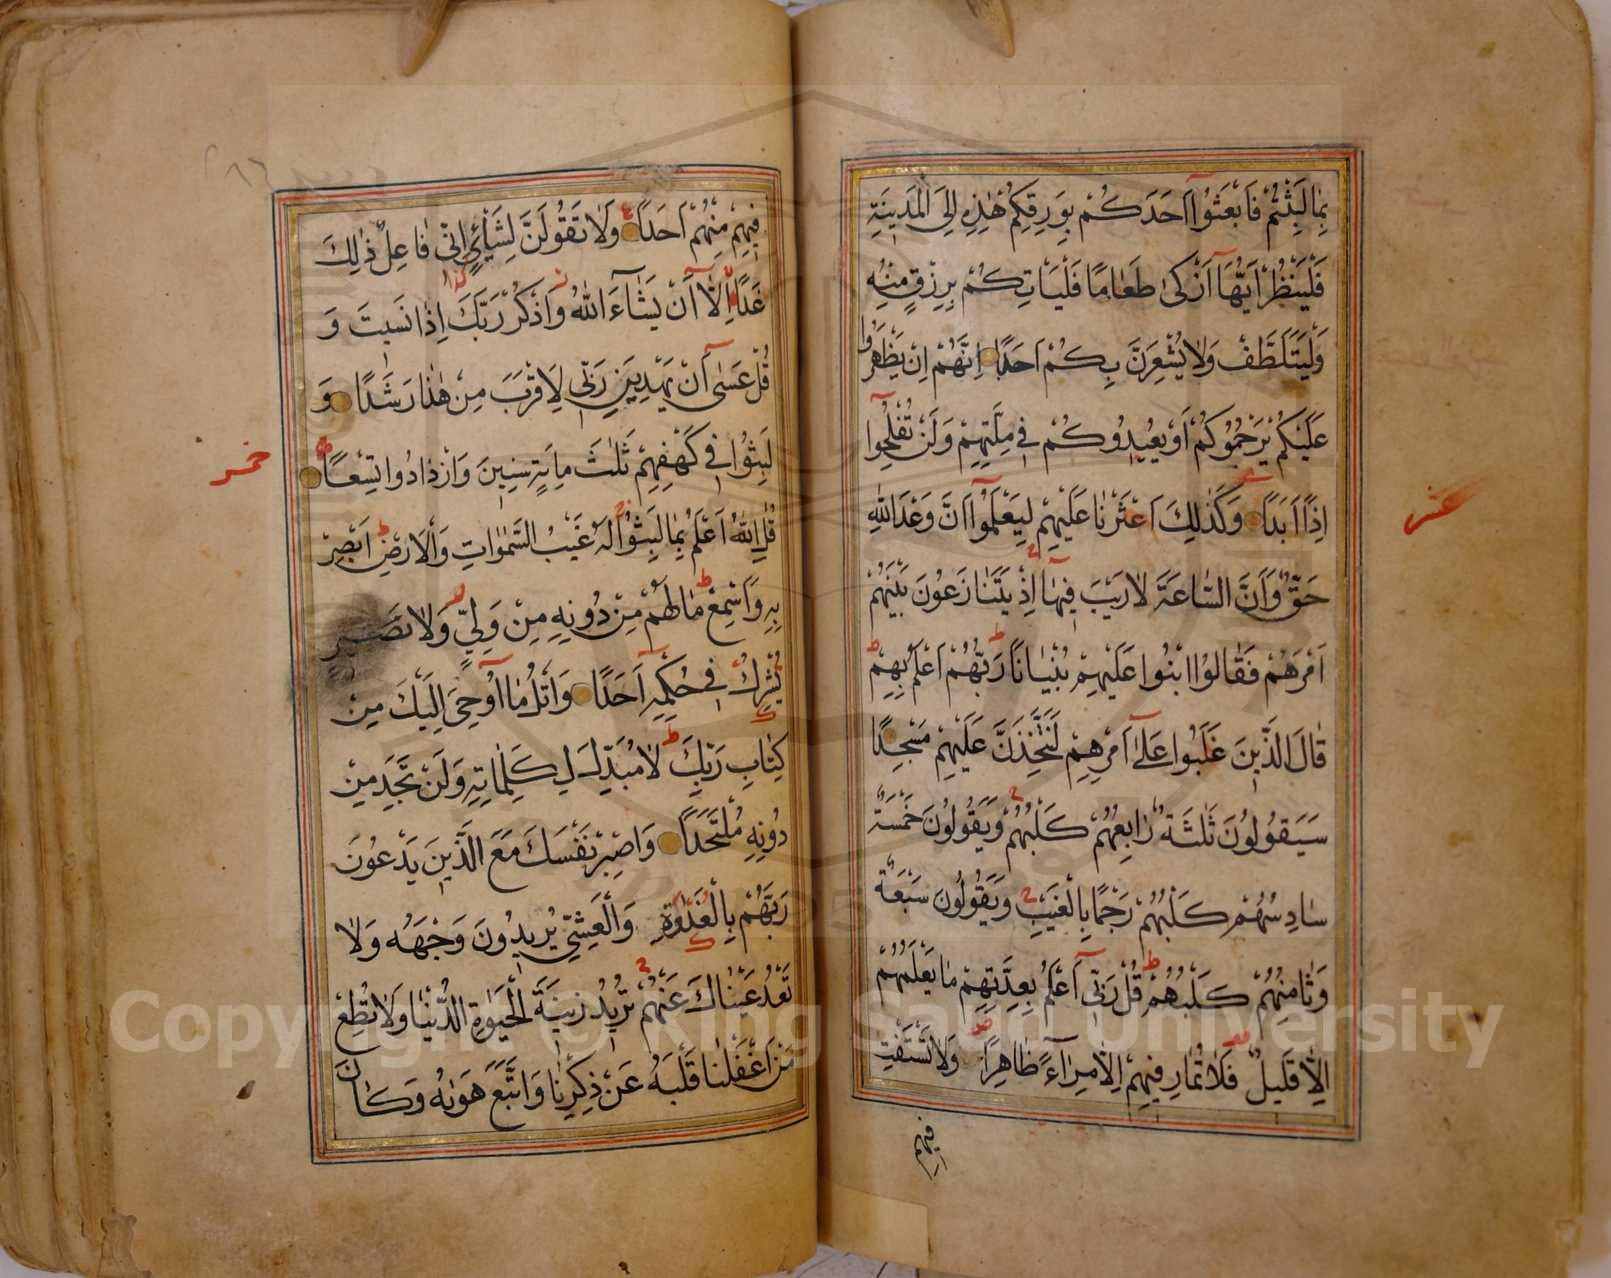 بِمَا لَبِثْتُمْ فَابْعَثُوٓا اَحَدَكُمْ بِوَرِقِكُمْ هٰذِهِ اِلَى الْمَدِينَةِ
فَلْيَنْظُرْ اَيُّهَآ اَزْكٰى طَعَامًا فَلْيَاْتِكُمْ بِرِزْقٍ مِنْهُ
وَلْيَتَلَطَّفْ وَلَا يُشْعِرَنَّ بِكُمْ اَحَدًا اِنَّهُمْ اِنْ يَظْهَرُوا
عَلَيْكُمْ يَرْجُمُوكُمْ اَوْ يُعِيدُوكُمْ فِي مِلَّتِهِمْ وَلَنْ تُفْلِحُوٓا
اِذًا اَبَدًا وَكَذٰلِكَ اَعْثَرْنَا عَلَيْهِمْ لِيَعْلَمُوٓا اَنَّ وَعْدَ اللّٰهِ
حَقٌّ وَاَنَّ السَّاعَةَ لَا رَيْبَ فِيهَآ اِذْ يَتَنَازَعُونَ بَيْنَهُمْ
اَمْرَهُمْ فَقَالُوا ابْنُوا عَلَيْهِمْ بُنْيَانًا رَبُّهُمْ اَعْلَمُ بِهِمْ
قَالَ الَّذِينَ غَلَبُوا عَلٰٓى اَمْرِهِمْ لَنَتَّخِذَنَّ عَلَيْهِمْ مَسْجِدًا
سَيَقُولُونَ ثَلٰثَةٌ رَابِعُهُمْ كَلْبُهُمْ وَيَقُولُونَ خَمْسَةٌ
سَادِسُهُمْ كَلْبُهُمْ رَجْمًا بِالْغَيْبِ وَيَقُولُونَ سَبْعَةٌ
وَثَامِنُهُمْ كَلْبُهُمْ قُلْ رَبِّٓي اَعْلَمُ بِعِدَّتِهِمْ مَا يَعْلَمُهُمْ
اِلَّا قَلِيلٌ فَلَا تُمَارِ فِيهِمْ اِلَّا مِرَآءً ظَاهِرًا وَلَا تَسْتَفْتِ
فِيهِمْ
عشر
فِيهِمْ مِنْهُمْ اَحَدًا وَلَا تَقُولَنَّ لِشَاْيْءٍ اِنِّي فَاعِلٌ ذٰلِكَ
غَدًا اِلَّآ اَنْ يَشَآءَ اللّٰهُ وَاذْكُرْ رَبَّكَ اِذَا نَسِيتَ وَ
قُلْ عَسٰٓى اَنْ يَهْدِيَنِ رَبِّي لِاَقْرَبَ مِنْ هٰذَا رَشَدًا وَ
لَبِثُوا فِي كَهْفِهِمْ ثَلٰثَ مِائَةٍ سِنِينَ وَازْدَادُوا تِسْعًا
قُلِ اللّٰهُ اَعْلَمُ بِمَا لَبِثُوا لَهُ غَيْبُ السَّمٰوَاتِ وَالْاَرْضِ اَبْصِرْ
بِهِ وَاَسْمِعْ مَا لَهُمْ مِنْ دُونِهِ مِنْ وَلِيٍّ وَلَا
يُشْرِكُ فِي حُكْمِهِٓ اَحَدًا وَاتْلُ مَآ اُوحِيَ اِلَيْكَ مِنْ
كِتَابِ رَبِّكَ لَا مُبَدِّلَ لِكَلِمَاتِهِ وَلَنْ تَجِدَ مِنْ
دُونِهِ مُلْتَحَدًا وَاصْبِرْ نَفْسَكَ مَعَ الَّذِينَ يَدْعُونَ
رَبَّهُمْ بِالْغَدٰوةِ وَالْعَشِيِّ يُرِيدُونَ وَجْهَهُ وَلَا
تَعْدُ عَيْنَاكَ عَنْهُمْ تُرِيدُ زِينَةَ الْحَيٰوةِ الدُّنْيَا وَلَا تُطِعْ
مَنْ اَغْفَلْنَا قَلْبَهُ عَنْ ذِكْرِنَا وَاتَّبَعَ هَوٰيهُ وَكَانَ
خمس
Copyright © King Saud University